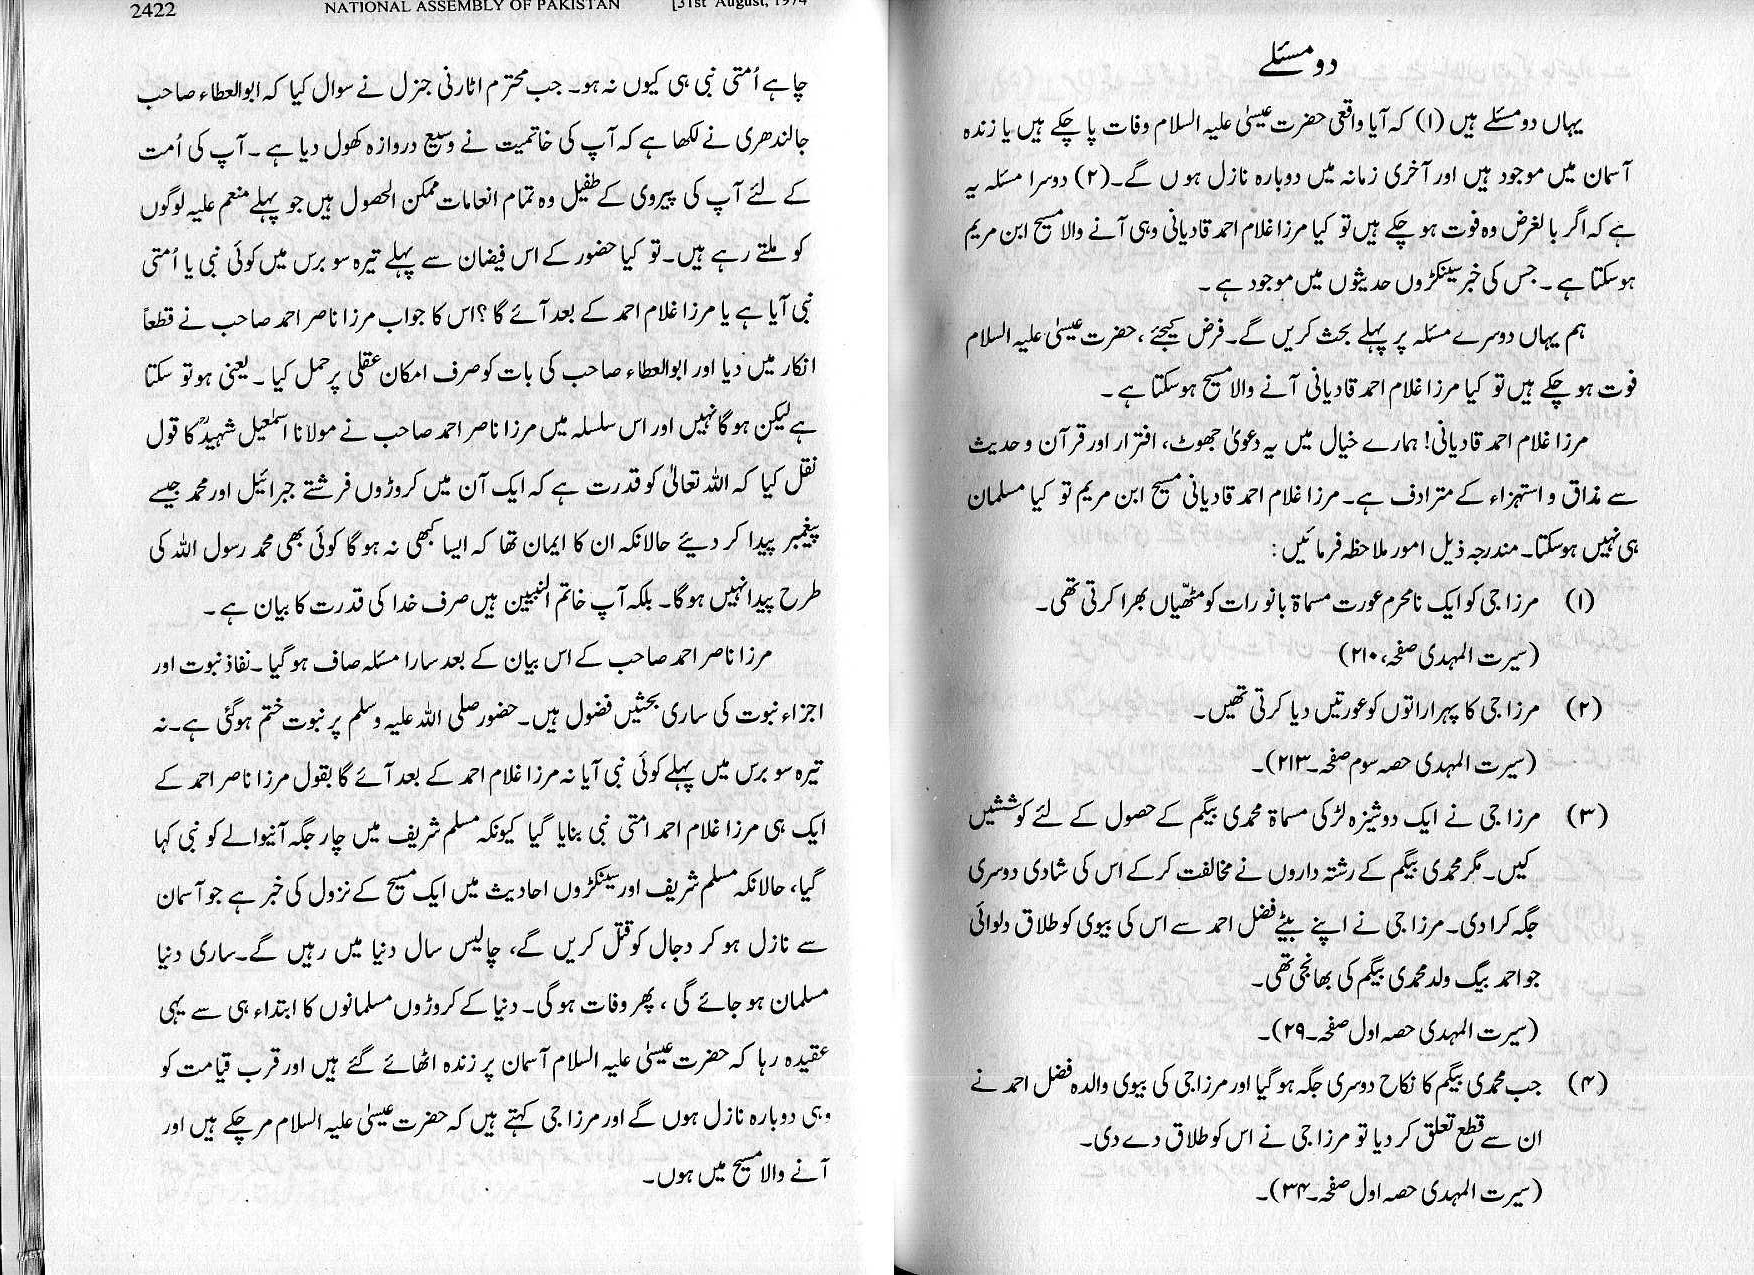 2422 NATIONAL ASSEMBLY OF PAKISTAN [31st August, 1974
چاہے اُمتی نبی ہی کیوں نہ ہو۔ جب محترم اٹارنی جنرل نے سوال کیا کہ ابوالعطاء صاحب
جالندھری نے لکھا ہے کہ آپ کی خاتمیت نے وسیع دروازہ کھول دیا ہے۔ آپ کی اُمت
کے لئے آپ کی پیروی کے طفیل وہ تمام انعامات ممکن الحصول ہیں جو پہلے منعم علیہ لوگوں
کو ملتے رہے ہیں۔ تو کیا حضور کے اس فیضان سے پہلے تیرہ سو برس میں کوئی نبی یا اُمتی
نبی آیا ہے یا مرزا غلام احمد کے بعد آئے گا؟ اس کا جواب مرزا ناصر احمد صاحب نے قطعاً
انکار میں دیا اور ابوالعطاء صاحب کی بات کو صرف امکان عقلی پر حمل کیا۔ یعنی ہو تو سکتا
ہے لیکن ہوگا نہیں اور اس سلسلہ میں مرزا ناصر احمد صاحب نے مولانا اسمٰعیل شہیدؒ کا قول
نقل کیا کہ اللہ تعالیٰ کو قدرت ہے کہ ایک آن میں کروڑوں فرشتے جبرائیل اور محمد جیسے
پیغمبر پیدا کر دیئے حالانکہ ان کا ایمان تھا کہ ایسا کبھی نہ ہوگا کوئی بھی محمد رسول اللہ کی
طرح پیدا نہیں ہوگا۔ بلکہ آپ خاتم النبیین ہیں صرف خدا کی قدرت کا بیان ہے۔
مرزا ناصر احمد صاحب کے اس بیان کے بعد سارا مسئلہ صاف ہو گیا۔ نفاذ نبوت اور
اجزاء نبوت کی ساری بحثیں فضول ہیں۔ حضور صلی اللہ علیہ وسلم پر نبوت ختم ہوگئی ہے۔ نہ
تیرہ سو برس میں پہلے کوئی نبی آیا نہ مرزا غلام احمد کے بعد آئے گا بقول مرزا ناصر احمد کے
ایک ہی مرزا غلام احمد امتی نبی بنایا گیا کیونکہ مسلم شریف میں چار جگہ آنیوالے کو نبی کہا
گیا، حالانکہ مسلم شریف اور سینکڑوں احادیث میں ایک مسیح کے نزول کی خبر ہے جو آسمان
سے نازل ہو کر دجال کو قتل کریں گے، چالیس سال دنیا میں رہیں گے۔ ساری دنیا
مسلمان ہو جائے گی، پھر وفات ہوگی۔ دنیا کے کروڑوں مسلمانوں کا ابتداء ہی سے یہی
عقیدہ رہا کہ حضرت عیسیٰ علیہ السلام آسمان پر زندہ اٹھائے گئے ہیں اور قرب قیامت کو
وہی دوبارہ نازل ہوں گے اور مرزا جی کہتے ہیں کہ حضرت عیسیٰ علیہ السلام مر چکے ہیں اور
آنے والا مسیح میں ہوں۔
دو مسئلے
یہاں دو مسئلے ہیں (۱) کہ آیا واقعی حضرت عیسیٰ علیہ السلام وفات پا چکے ہیں یا زندہ
آسمان میں موجود ہیں اور آخری زمانہ میں دوبارہ نازل ہوں گے۔ (۲) دوسرا مسئلہ یہ
ہے کہ اگر بالغرض وہ فوت ہو چکے ہیں تو کیا مرزا غلام احمد قادیانی وہی آنے والا مسیح ابن مریم
ہو سکتا ہے۔ جس کی خبر سینکڑوں حدیثوں میں موجود ہے۔
ہم یہاں دوسرے مسئلہ پر پہلے بحث کریں گے۔ فرض کیجئے، حضرت عیسیٰ علیہ السلام
فوت ہو چکے ہیں تو کیا مرزا غلام احمد قادیانی آنے والا مسیح ہو سکتا ہے۔
مرزا غلام احمد قادیانی! ہمارے خیال میں یہ دعویٰ جھوٹ، افترار اور قرآن و حدیث
سے مذاق و استہزاء کے مترادف ہے۔ مرزا غلام احمد قادیانی مسیح ابن مریم تو کیا مسلمان
ہی نہیں ہو سکتا۔ مندرجہ ذیل امور ملاحظہ فرمائیں:
(۱) مرزا جی کو ایک نامحرم عورت مسماۃ بانو رات کو مٹھیّاں بھرا کرتی تھی۔
(سیرت المہدی صفحہ، ۲۱۰)
(۲) مرزا جی کا پہرا راتوں کو عورتیں دیا کرتی تھیں۔
(سیرت المہدی حصہ سوم صفحہ۔ ۲۱۳)۔
(۳) مرزا جی نے ایک دوشیزہ لڑکی مسماۃ محمدی بیگم کے حصول کے لئے کوششیں
کیں۔ مگر محمدی بیگم کے رشتہ داروں نے مخالفت کر کے اس کی شادی دوسری
جگہ کرا دی۔ مرزا جی نے اپنے بیٹے فضل احمد سے اس کی بیوی کو طلاق دلوائی
جو احمد بیگ ولد محمدی بیگم کی بھانجی تھی۔
(سیرت المہدی حصہ اول صفحہ۔ ۲۹)۔
(۴) جب محمدی بیگم کا نکاح دوسری جگہ ہو گیا اور مرزا جی کی بیوی والدہ فضل احمد نے
ان سے قطع تعلق کر دیا تو مرزا جی نے اس کو طلاق دے دی۔
(سیرت المہدی حصہ اول صفحہ۔ ۳۴)۔